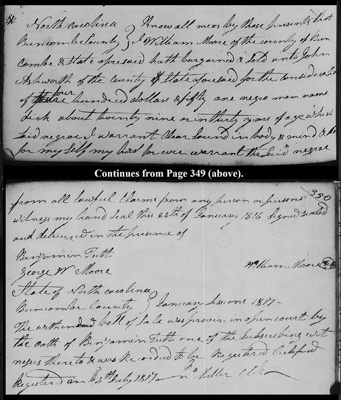 North Carolina } Know all men by these presents that
Buncombe County } I William Moore of the county of Bun
combe & State aforesaid hath bargained & Sold unto John
Ashworth of the County & State aforesaid for the consideration
of four hundred dollars & fifty one negro man name
about twenty nine or thirty years of age which
said negroe I warrant Clear Sound in body & mind &
for my self my heirs for ever warrant the said negroe
Continues from Page 349 (above).
350
from all lawful Claims from any person or persons
witness my hand seal this 24th of January 1816 Signed seald
and delivered in the presence of
Benjamin Tutt
George W Moore
William Moore
State of North Carolina }
Buncombe County } January Sessions 1817
The bill of Sale was proven in open court by
the oath of Benjamin Tutt one of the Subscribing wit
nesses thereto & was ordered to be Registered
Registered July 1817 Miller Clk